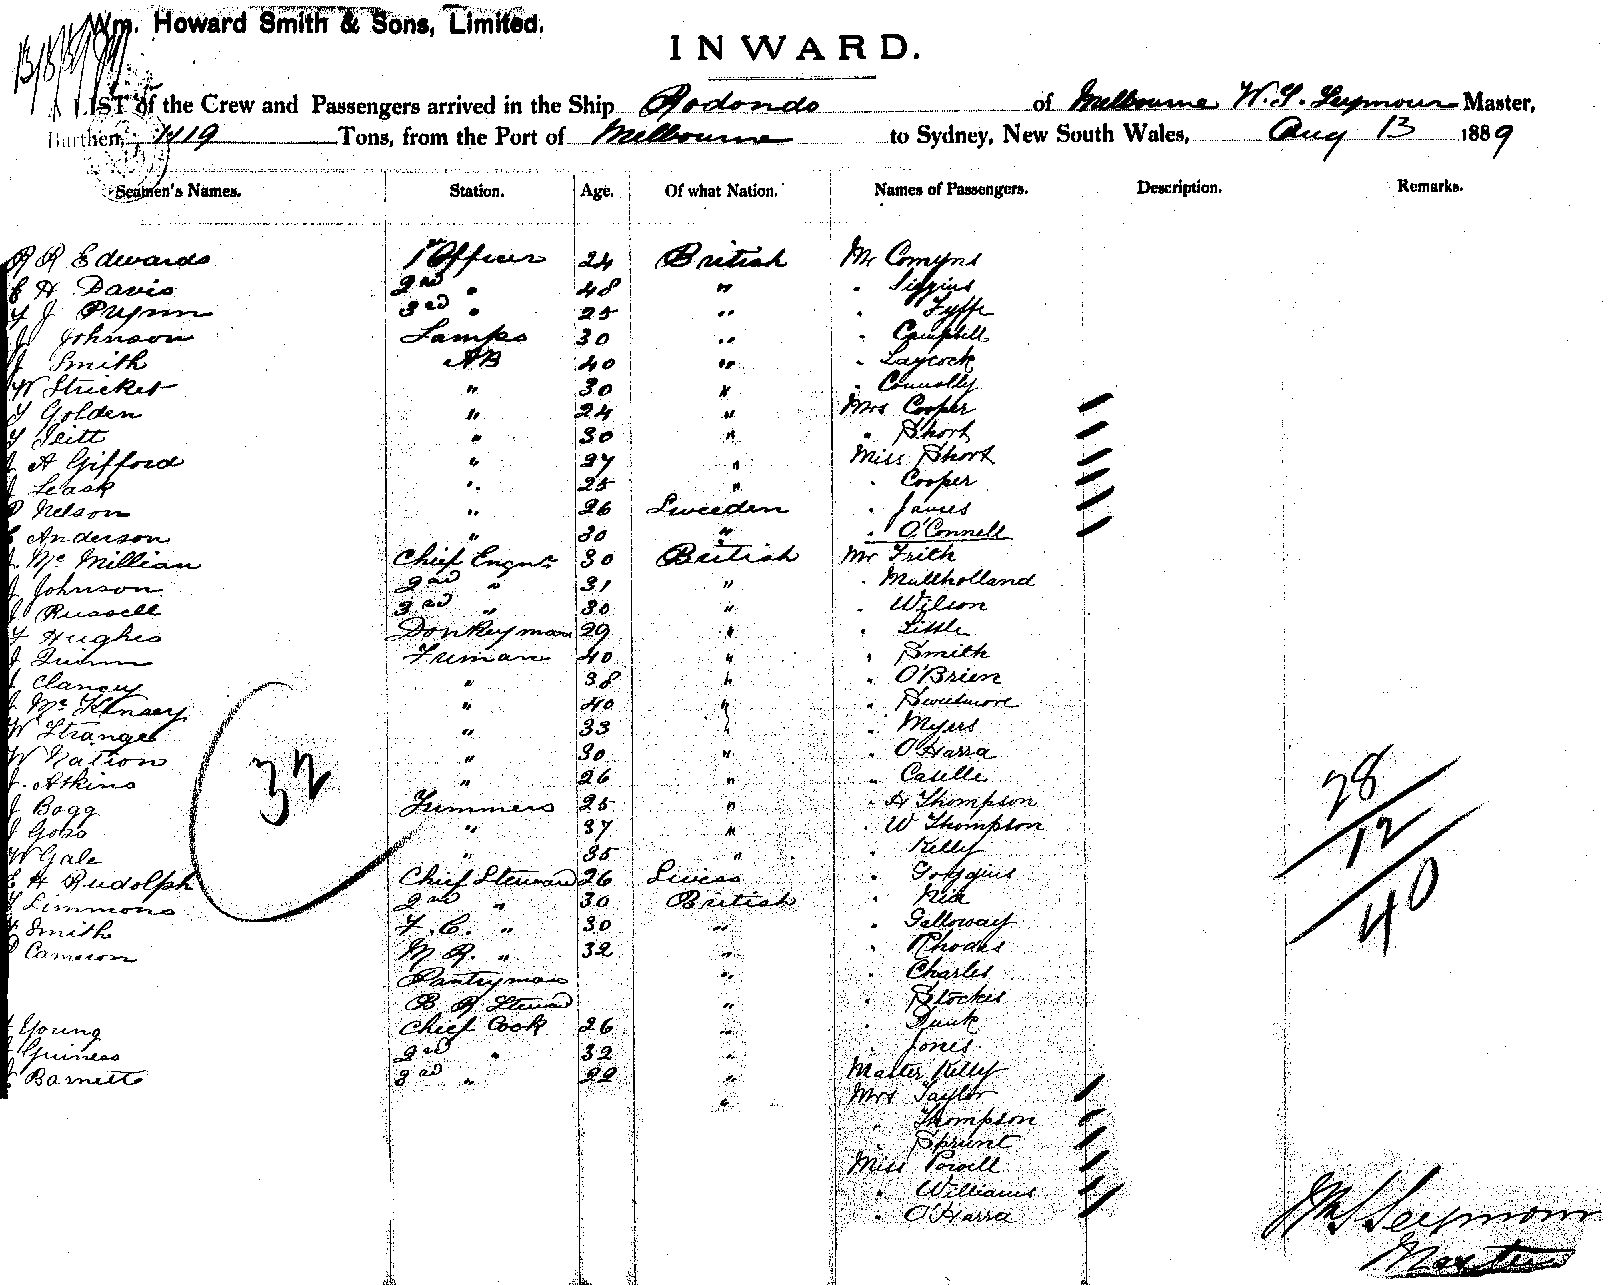 Wm. Howard Smith & Sons, Limited.
13/8/89
INWARD.
LIST of the Crew and Passengers arrived in the Ship Rodondo of Melbourne W. S. Seymour Master,
Burthen, 1119 Tons, from the Port of Melbourne to Sydney, New South Wales, Aug 13 1889
Seamen's Names. Station. Age. Of what Nation. Names of Passengers. Description. Remarks.
R R Edwards 1st Officer 24 British Mr Comyns
E H Davis 2nd " 48 " " Siggins
J Prynn 3rd " 25 " " Fyffe
J Johnson Lamps 30 " " Campbell
J Smith AB 40 " " Laycock
W Stricket " 30 " " Connolly
Golden " 24 " Mrs Cooper
" 30 " " Short
J A Gifford " 27 " Miss Short
J Leask " 25 " " Cooper
Nelson " 26 Sweeden " James
Anderson " 30 " " O'Connell
J Mc Millian Chief Engnr 30 British Mr Frith
J Johnson 2nd " 31 " " Mullholland
J Russell 3rd " 30 " " Wilson
Hughes Donkeyman 29 " " Little
J Quinn Fireman 40 " " Smith
J Clancy " 38 " " O'Brien
J Mc Kinsey " 40 " "
W Strange " 33 " " Myers
W Nation " 30 " " O'Harra
J. Atkins " 26 " " Caselle
J Bogg Trimmers 25 " " H Thompson
J Goss " 37 " " W Thompson
W Gale " 35 " " Kelly
E H Rudolph Chief Steward 26 Swiss "
Simmons 2nd " 30 British "
Smith F. C. " 30 " " Galloway
Cameron M R. " 32 " " Rhodes
Pantryman " " Charles
B R Steward " " Stockes
Young Chief Cook 26 " " Dunk
Guiness 2nd " 32 " " Jones
Barnett 3rd " 22 " Master Kelly
" Mrs Taylor
" Thompson
" Sprunt
Miss Powell
" Williams
" O'Harra
32
28
12
40
Wm S Seymour
Master